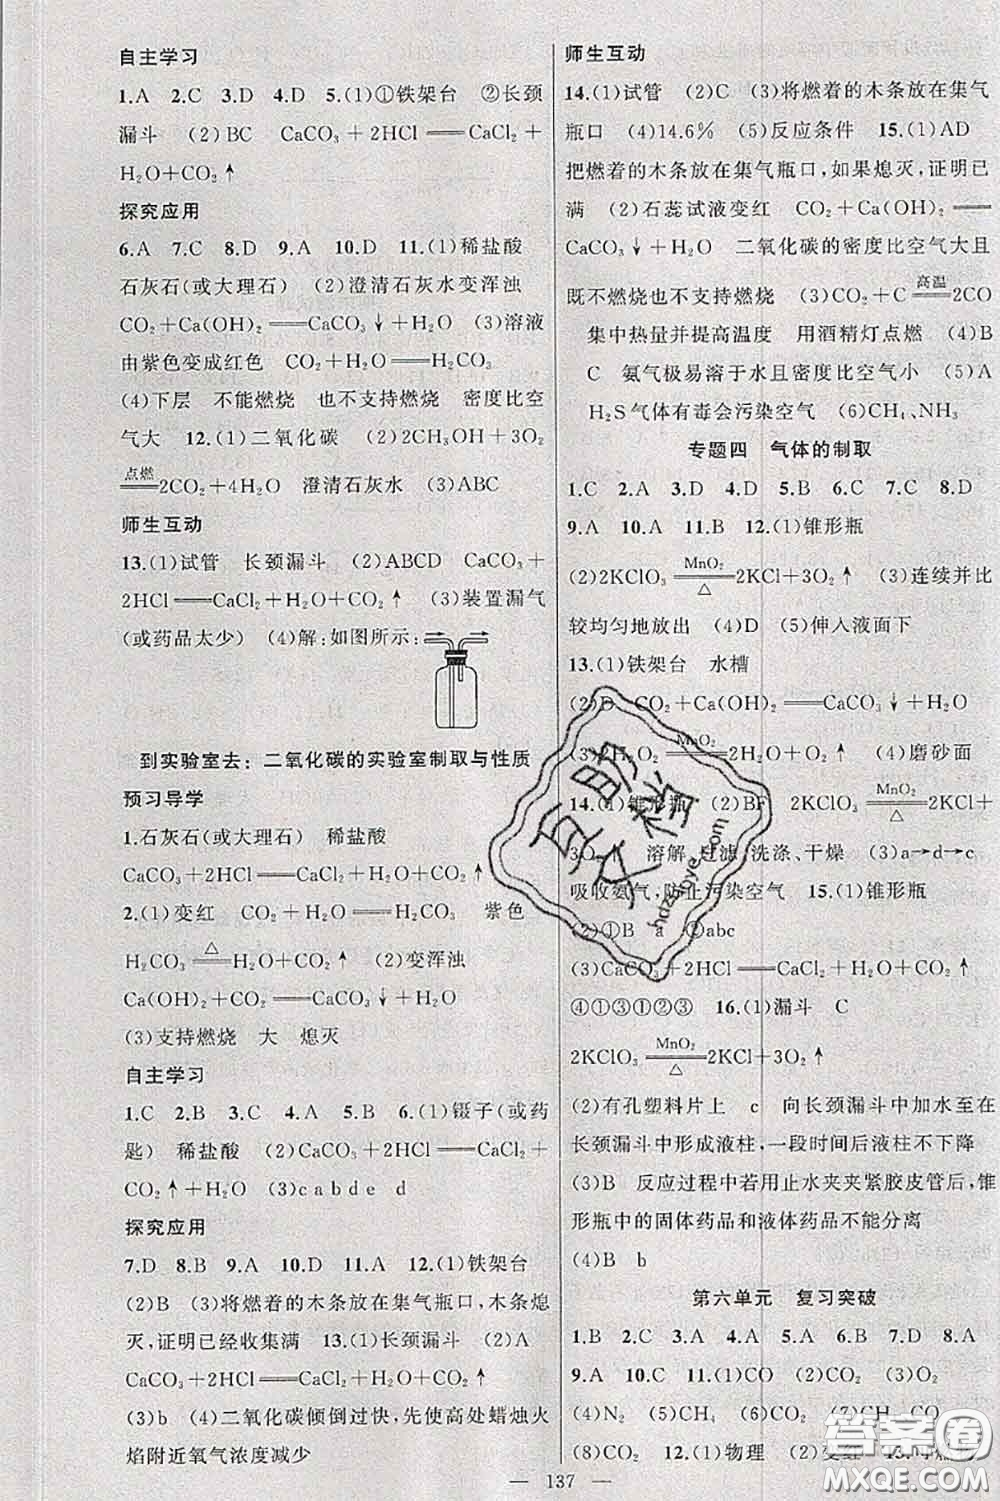 自主学习
1.A 2.C 3.D 4.D 5.(1)①铁架台 ②长颈
漏斗 (2)BC CaCO₃+2HCl══CaCl₂+
H₂O+CO₂↑
探究应用
6.A 7.C 8.D 9.A 10.D 11.(1)稀盐酸
石灰石(或大理石) (2)澄清石灰水变浑浊
CO₂+Ca(OH)₂══CaCO₃↓+H₂O (3)溶液
由紫色变成红色 CO₂+H₂O══H₂CO₃
(4)下层 不能燃烧 也不支持燃烧 密度比空
气大 12.(1)二氧化碳 (2)2CH₃OH+3O₂
点燃
══2CO₂+4H₂O 澄清石灰水 (3)ABC
师生互动
13.(1)试管 长颈漏斗 (2)ABCD CaCO₃+
2HCl══CaCl₂+H₂O+CO₂↑ (3)装置漏气
(或药品太少) (4)解:如图所示:
到实验室去:二氧化碳的实验室制取与性质
预习导学
1.石灰石(或大理石) 稀盐酸
CaCO₃+2HCl══CaCl₂+H₂O+CO₂↑
2.(1)变红 CO₂+H₂O══H₂CO₃ 紫色
△
H₂CO₃══H₂O+CO₂↑ (2)变浑浊
Ca(OH)₂+CO₂══CaCO₃↓+H₂O
(3)支持燃烧 大 熄灭
自主学习
1.C 2.B 3.C 4.A 5.B 6.(1)镊子(或药
匙) 稀盐酸 (2)CaCO₃+2HCl══CaCl₂+
CO₂↑+H₂O (3)cabde d
探究应用
7.D 8.B 9.A 10.D 11.A 12.(1)铁架台
(2)B (3)将燃着的木条放在集气瓶口,木条熄
灭,证明已经收集满 13.(1)长颈漏斗 (2)A
CaCO₃+2HCl══CaCl₂+H₂O+CO₂↑
(3)b (4)二氧化碳倾倒过快,先使高处蜡烛火
焰附近氧气浓度减少
师生互动
14.(1)试管 (2)C (3)将燃着的木条放在集气
瓶口 (4)14.6% (5)反应条件 15.(1)AD
把燃着的木条放在集气瓶口,如果熄灭,证明已
满 (2)石蕊试液变红 CO₂+Ca(OH)₂══
CaCO₃↓+H₂O 二氧化碳的密度比空气大且
高温
既不燃烧也不支持燃烧 (3)CO₂+C══2CO
集中热量并提高温度 用酒精灯点燃 (4)B
C 氨气极易溶于水且密度比空气小 (5)A
H₂S气体有毒会污染空气 (6)CH₄、NH₃
专题四 气体的制取
1.C 2.A 3.D 4.D 5.B 6.C 7.C 8.D
9.A 10.A 11.B 12.(1)锥形瓶
MnO₂
(2)2KClO₃══2KCl+3O₂↑ (3)连续并比
△
较均匀地放出 (4)D (5)伸入液面下
13.(1)铁架台 水槽
(2)D CO₂+Ca(OH)₂══CaCO₃↓+H₂O
MnO₂
(3)H₂O₂══2H₂O+O₂↑ (4)磨砂面
MnO₂
14.(1)锥形瓶 (2)BF 2KClO₃══2KCl+
△
3O₂↑ 溶解、过滤、洗涤、干燥 (3)a→d→c
吸收氨气,防止污染空气 15.(1)锥形瓶
(2)①B a ②abc
(3)CaCO₃+2HCl══CaCl₂+H₂O+CO₂↑
④①③①②③ 16.(1)漏斗 C
MnO₂
2KClO₃══2KCl+3O₂↑
△
(2)有孔塑料片上 c 向长颈漏斗中加水至在
长颈漏斗中形成液柱,一段时间后液柱不下降
(3)B 反应过程中若用止水夹夹紧胶皮管后,锥
形瓶中的固体药品和液体药品不能分离
(4)B b
第六单元 复习突破
1.B 2.C 3.A 4.D 5.A 6.B 7.D 8.A
9.A 10.C 11.(1)CO (2)CO₂ (3)O₂
(4)N₂ (5)CH₄ (6)CO₂ (7)CH₄ CO
(8)CO₂ 12.(1)物理 (2)变红 13.(1)可燃
137
互助文档
hdzuoye.com
答案圈
MXQE.COM